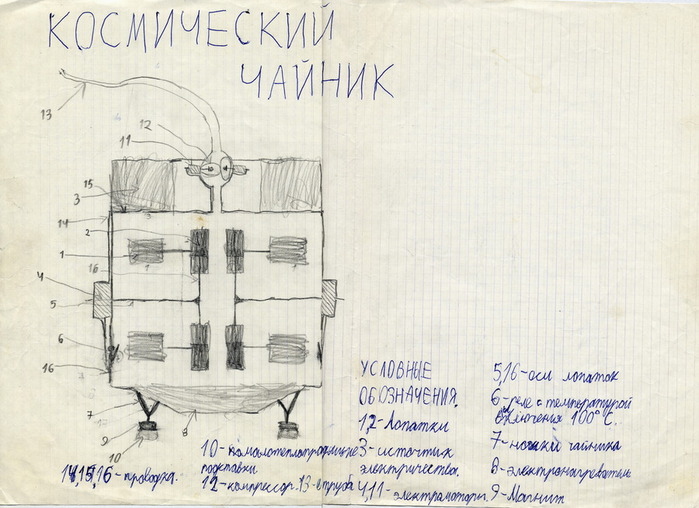 КОСМИЧЕСКИЙ
ЧАЙНИК
13
12
11
15
3
3
14
2
1
1
1
16
4
5
6
16
7
9
8
10
УСЛОВНЫЕ
ОБОЗНАЧЕНИЯ.
1,2-Лопатки
3-источник
электричества.
4,11-электромоторы.
5,16-оси лопаток
6-реле с температурой
включения 100°С.
7-ножки чайника
8-электронагреватель
9-Магнит
10-
подставки
12-компрессор.13-
14,15,16-проводка.